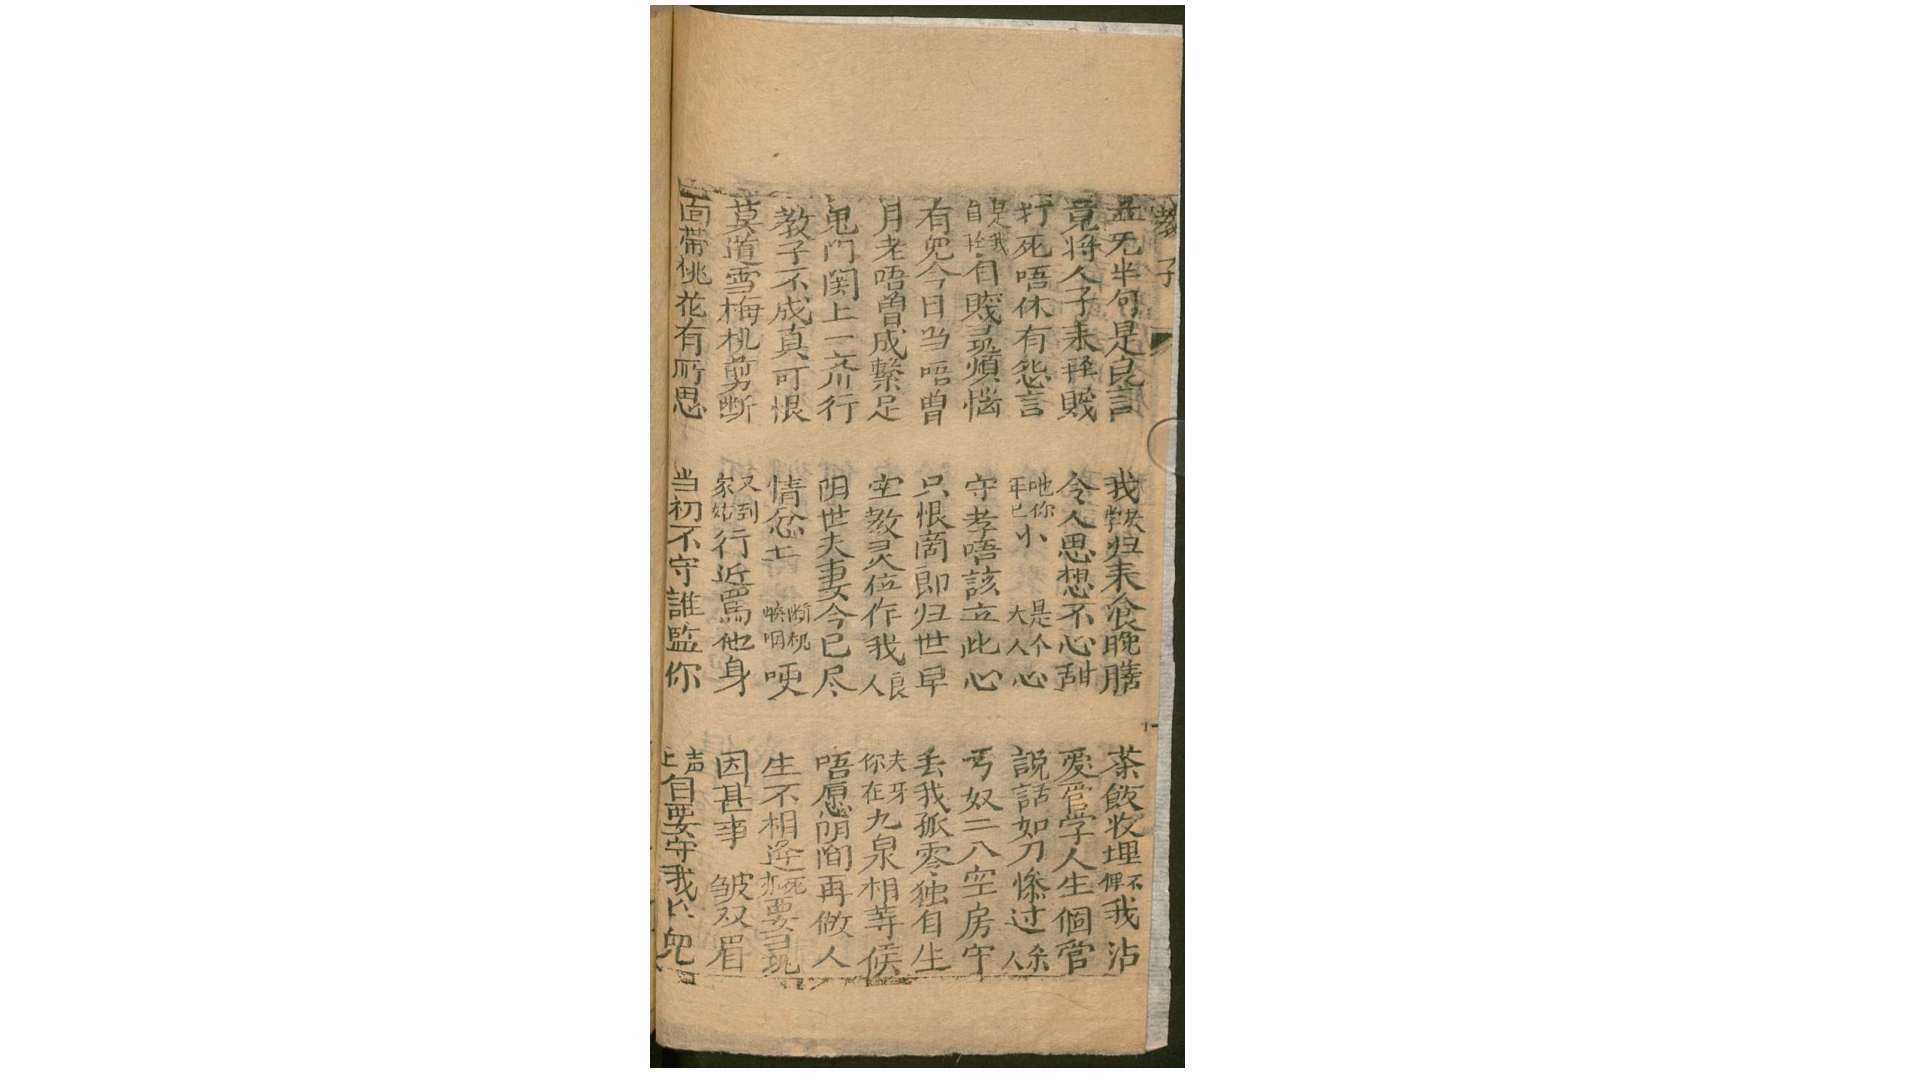 教子
並无半句是良言 我失學归来飡晚膳 茶飯收埋不俾我沾
竟将人子来轻贱 令人思想不心甜 爱官学人生個管
打死唔休有怨言 吔你年已小 是个大人心 説話如刀惨过杀人
是我自轻自贱寻煩惱 守孝唔該立此心 丐奴二八空房守
有児今日当唔曽 只恨商郎归世早 丢我孤零独自生
月老唔曽成繫足 空教灵位作我良人 夫牙你在九泉相等候
鬼门関上一齐行 阴世夫妻今已尽 唔愿阴间再做人
教子不成真可恨 情忿忿 断枧喉咽哽 生不相逢死亦要寻
莫道雪梅桃剪断 又到家姑行近罵他身 因甚事 皱双眉
面帶桃花有所思 当初不守誰監你 声正自要守我児